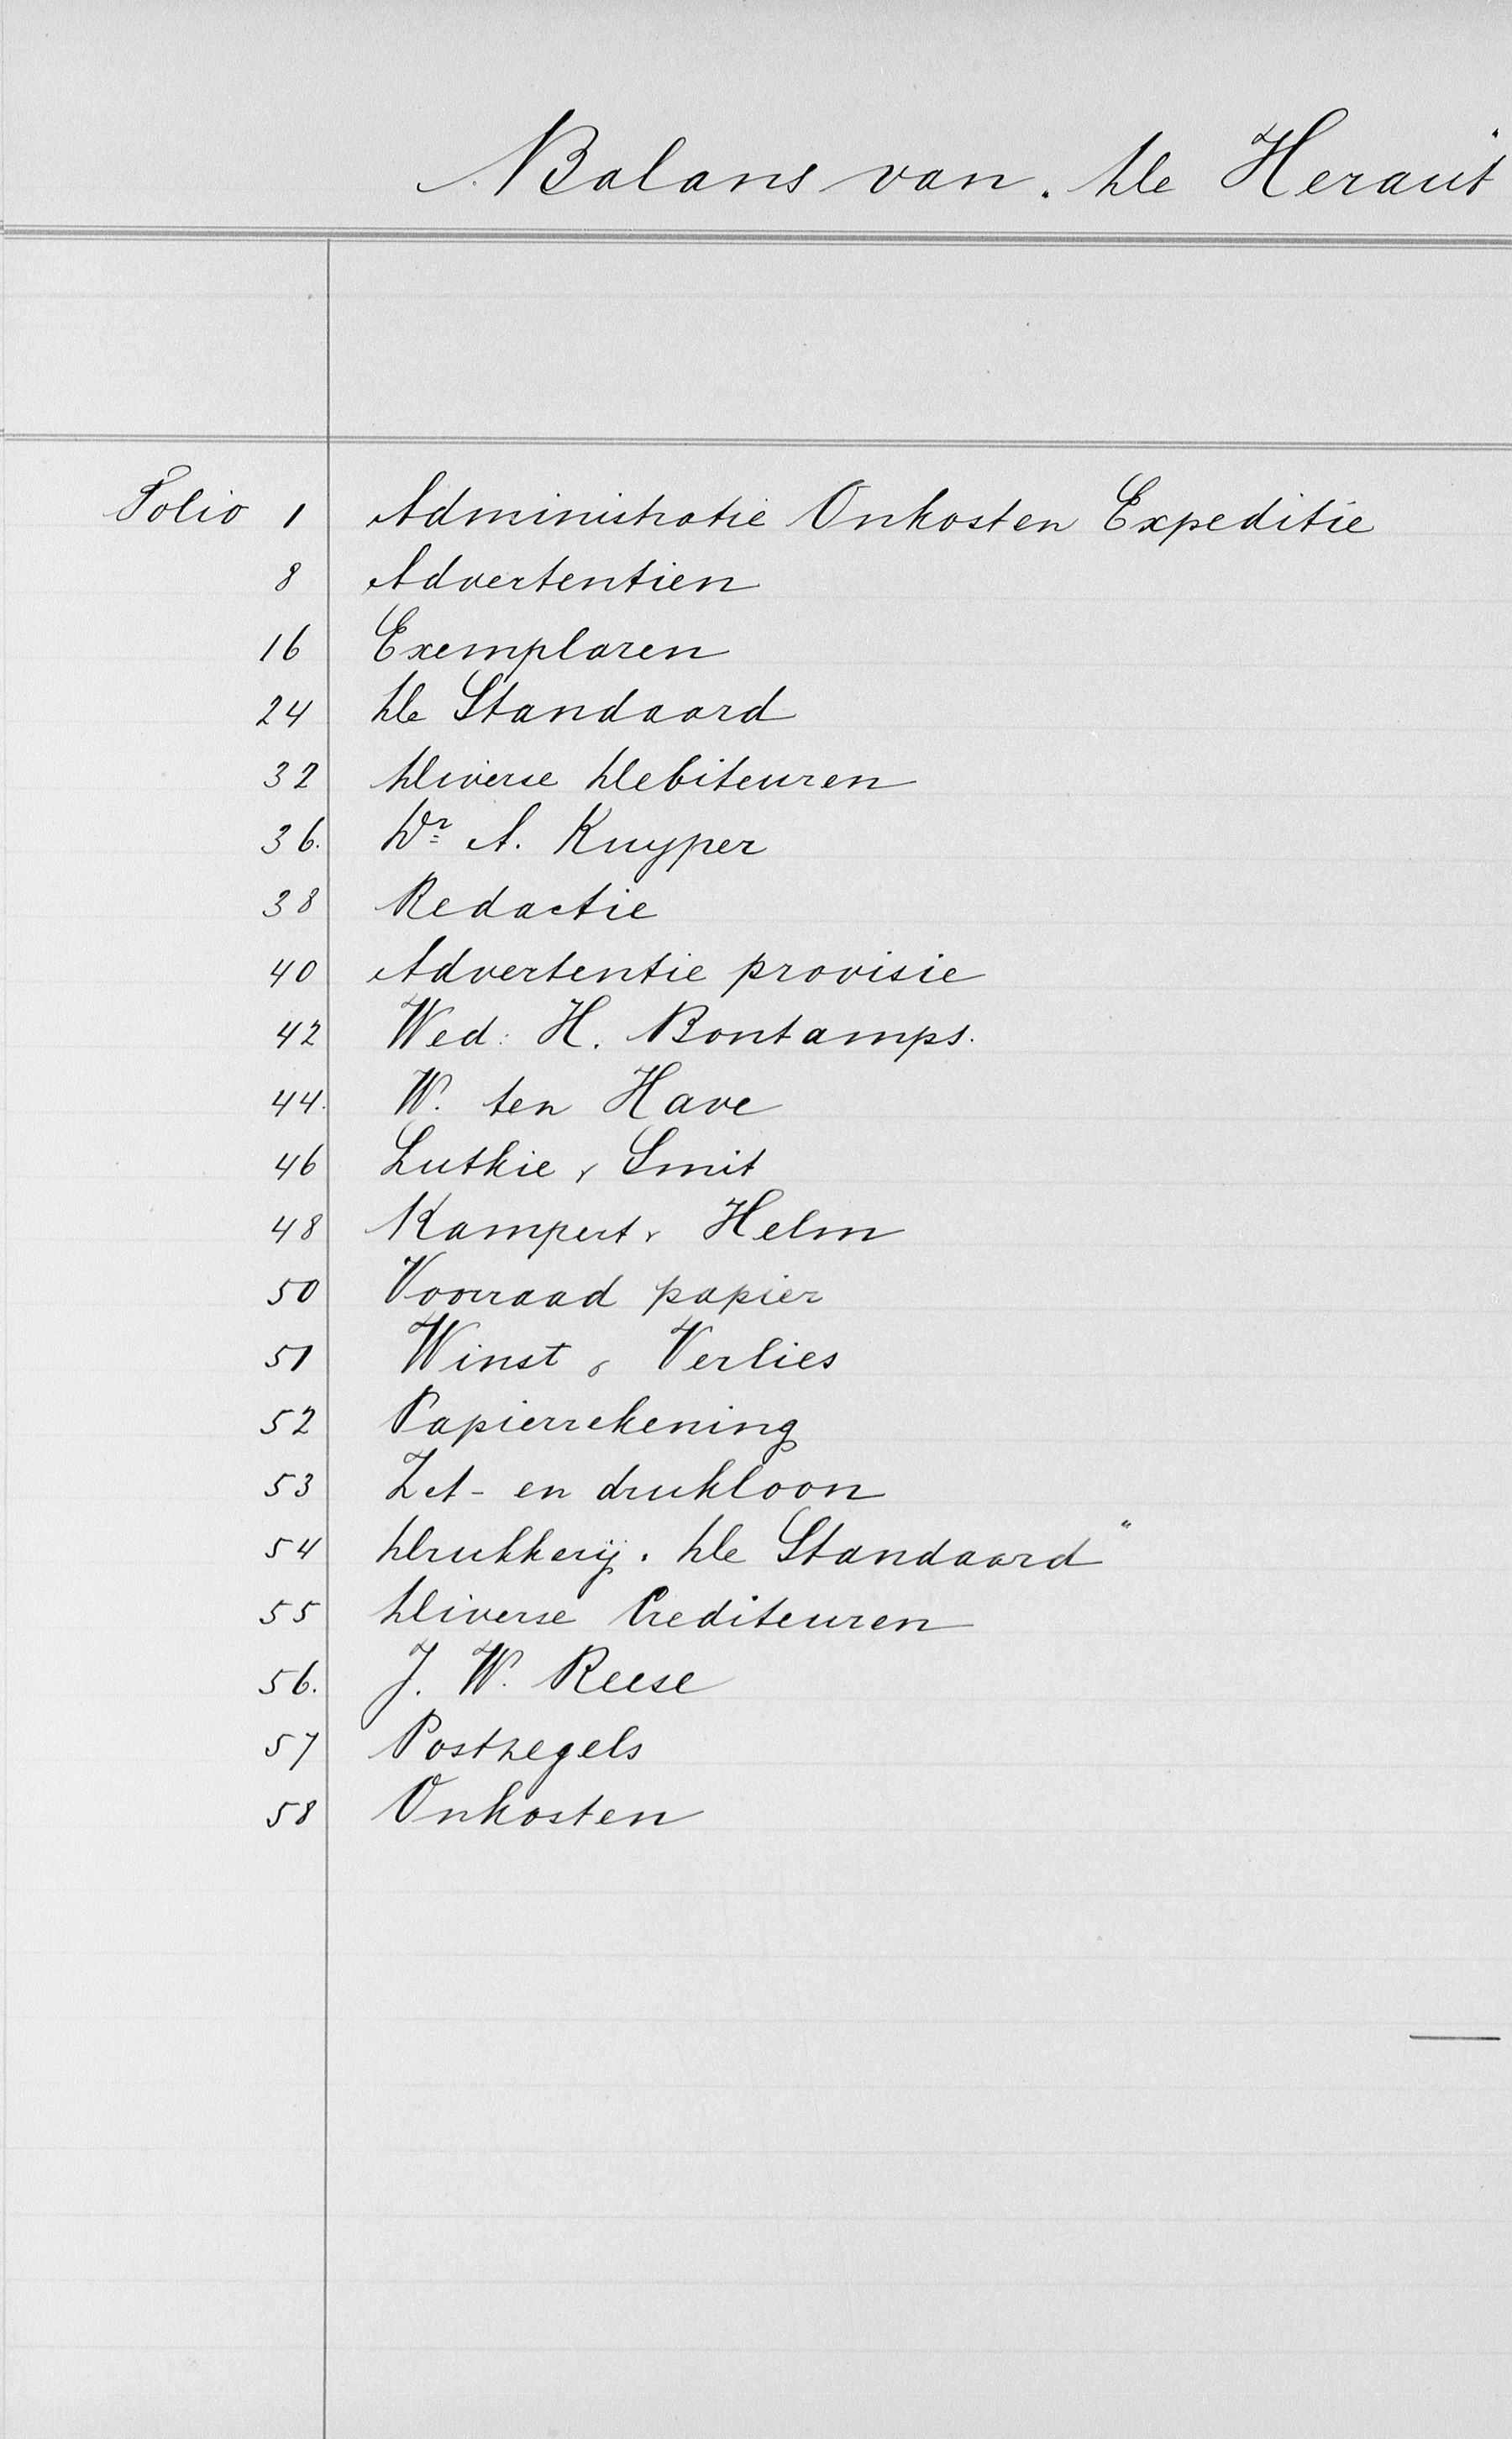 Balans van „De Heraut"
Folio 1 Administratie Onkosten Expeditie
8 Advertentien
16 Exemplaren
24 De Standaard
32 Diverse Debiteuren
36. Dr. A. Kuyper
38 Redactie
40 Advertentie provisie
42 Wed: H. Bontamps.
44. W. ten Have
46 Lutkie & Smit
48 Kampert & Helm
50 Voorraad papier
51 Winst & Verlies
52 Papierrekening
53 Zet- en drukloon
54 Drukkerij „De Standaard"
55 Diverse Crediteuren
56. J. W. Reese
57 Postzegels
58 Onkosten